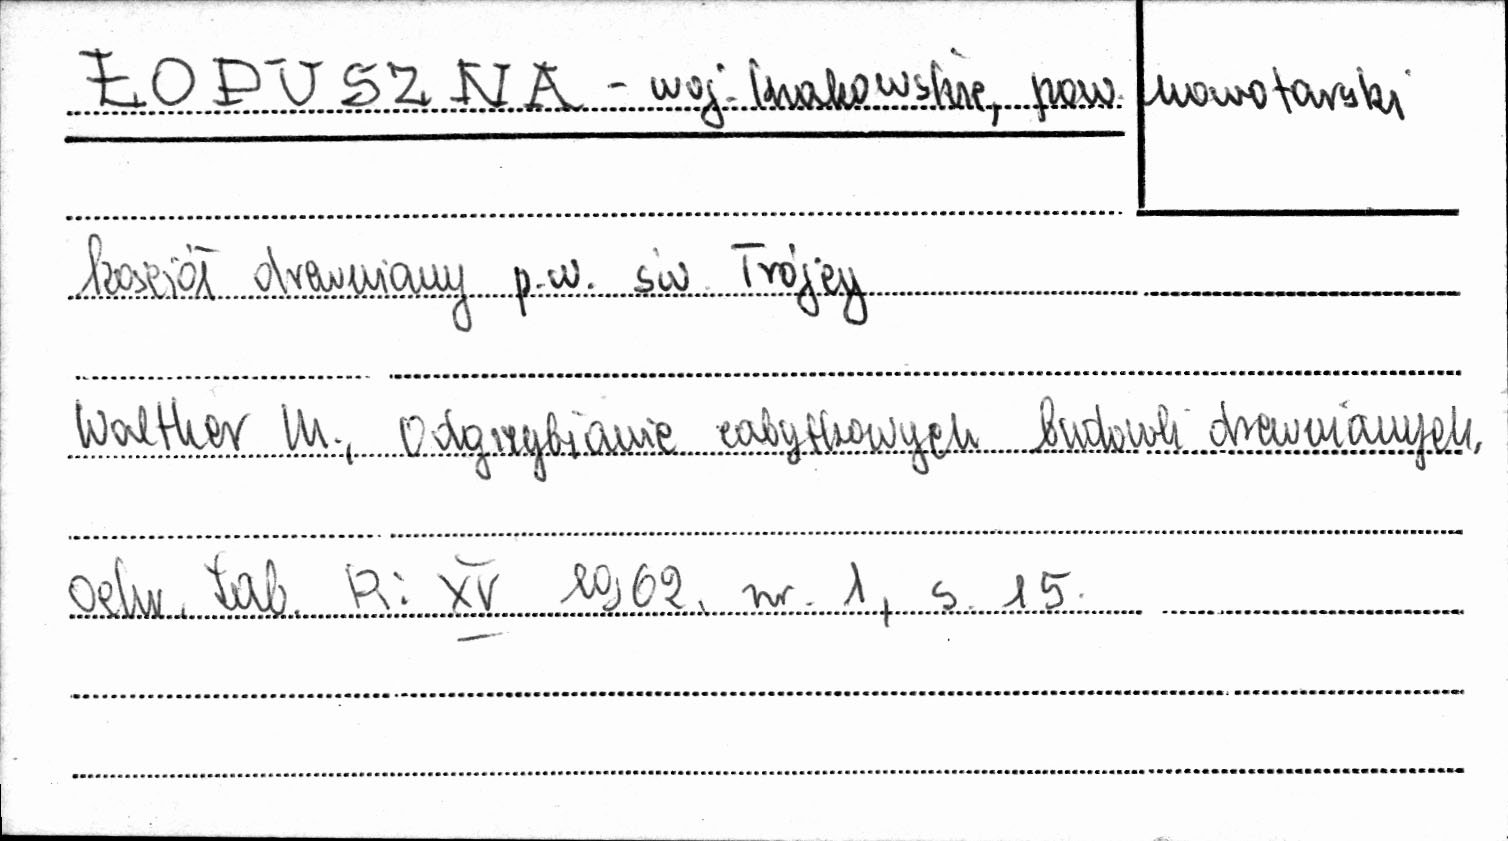 ŁOPUSZNA - woj. krakowskie, pow. nowotarski
kościół drewniany p.w. św. Trójcy
Walther M., Odgrzybianie zabytkowych budowli drewnianych,
Ochr. Zab. R: XV 1962, nr. 1, s. 15.